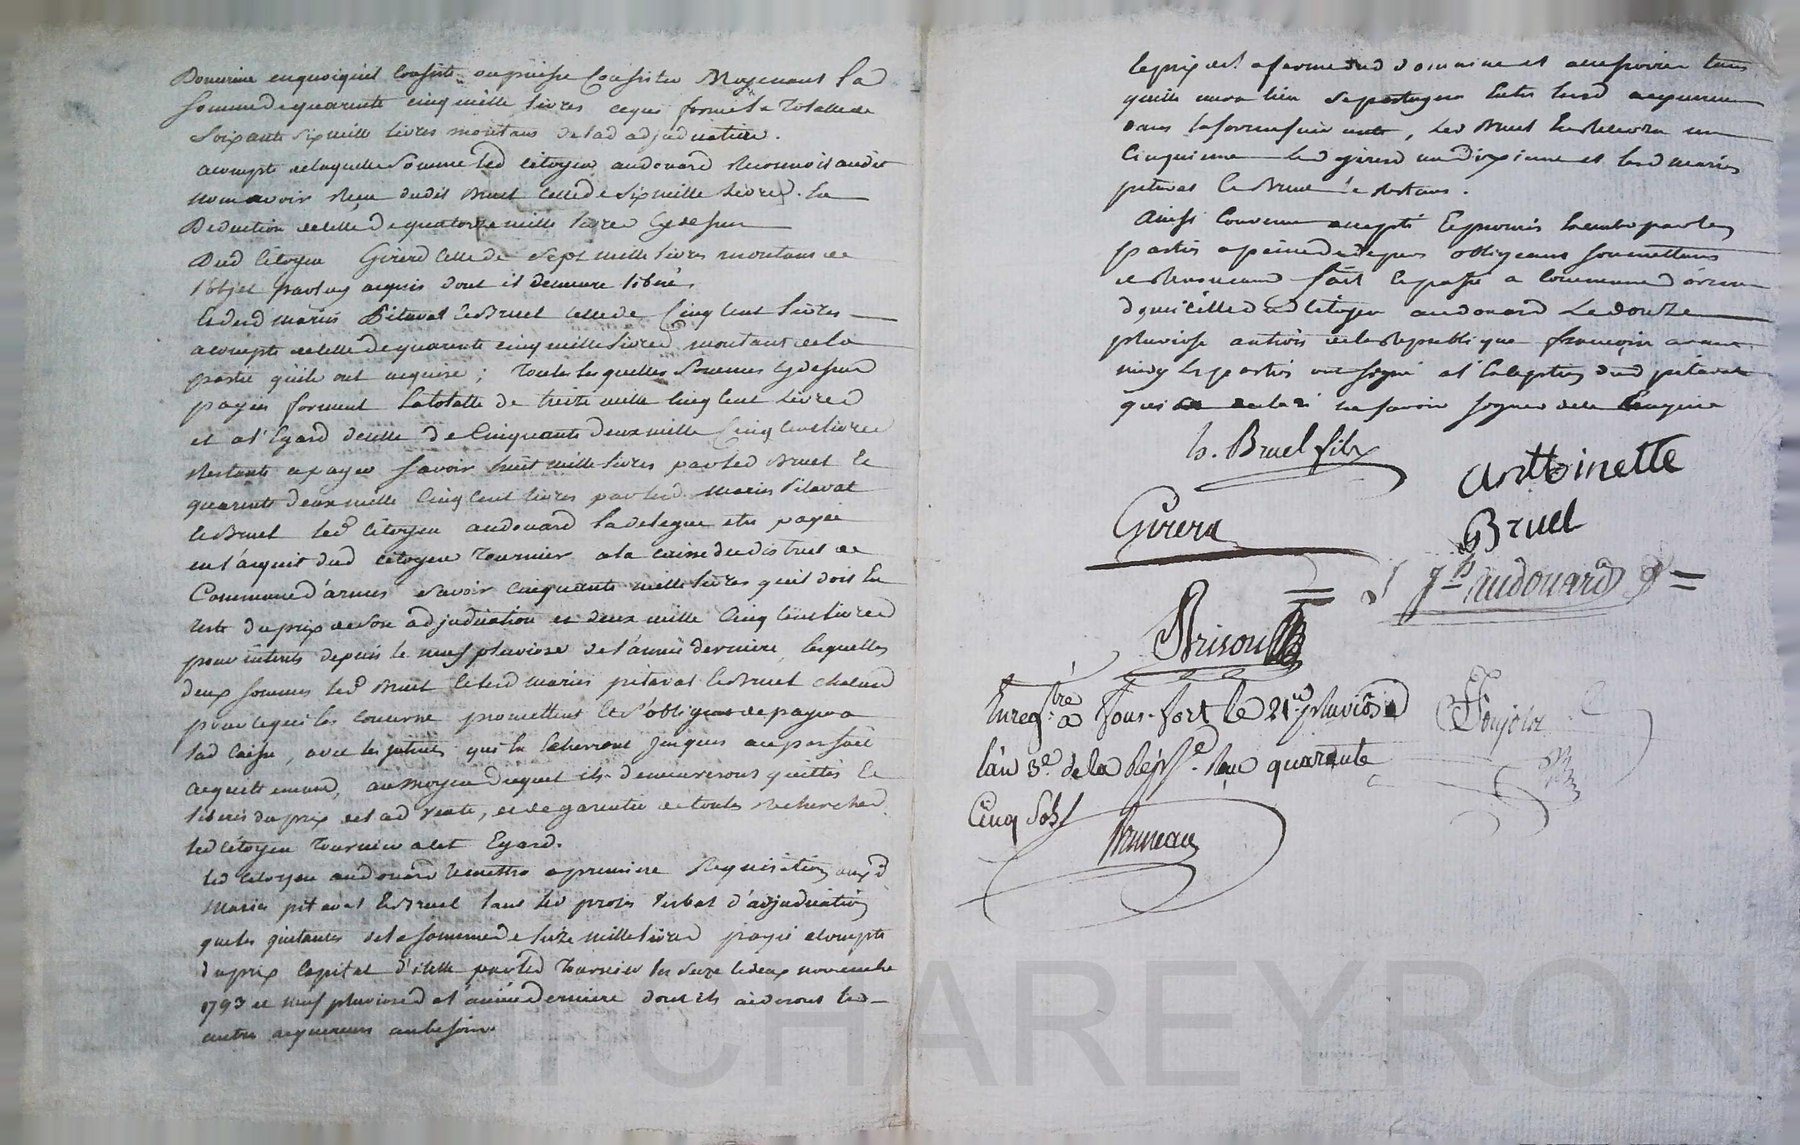 Domaine en quoi qu'il Consiste ou puisse Consister Moyenant lad
somme de quarente cinq mille livres ce qui forme la Totalle de
soixante six mille livres montant de lad adjudication.
acompte de laquelle somme led Citoyen audouard Reconnoit audit
nom avoir Reçu dudit Bruel celle de six mille Livred. En
Deduction de celle de quatorze mille livred Cydessus
Dud Citoyen Girerd Celle de sept mille livres montant de
l'objet par luy acquis dont il demeure libéré,
Et desd mariés Pitaval et Bruel celle de Cinq Cent livres
acompte de celle de quarente cinq mille livred montant de la
partie qu'ils ont acquise ; Toutes lesquelles Sommes Cydessus
payées forment la totalle de treize mille cinq cent Livred
et a l'Egard de celle de Cinquante deux mille Cinq Cent livred
Restante a payer savoir huit mille livres par led Bruel Et
quarente deux mille Cinq Cent livres par lesd. Mariés Pitaval
et Bruel led Citoyen audouard la delegue etre payée
en l'acquit dud Citoyen Tournier a la caisse du district de
Commune d'armes savoir cinquante mille livres qu'il doit En
reste du prix de son adjudication et deux mille Cinq Cent livred
pour intérêts depuis le neuf pluviose de l'année dernière, lesquelles
deux sommes led Bruel et lesd mariés pitaval et Bruel chacun
pour ce qui les concerne promettent Et s'obligent de payer a
lad Caisse, avec les intérêts qui En Echerront jusques au parfait
acquittement, au moyen duquel ils demeureront quittes Et
libérés du prix de lad vente, et de garentir de toutes Recherches
led citoyen Tournier a cet Egard.
led Citoyen audouard Remettra a premiere Requisition auxd
Mariés pitaval Et Bruel tant led procès Verbal d'adjudication
que les quittances de la somme de seize mille livred payée acompte
du prix Capital d'icelle par led Tournier les seize et deux novembre
1793 et neuf pluviosed et l'année derniere dont ils aideront les
autres acquereurs au besoin.
le prix de l'afferme dud domaine et au surplus tant
qu'ils aura lieu se partagera Entre lesd acquereurs
dans la forme suivante, led Bruel En Retirera un
Cinquieme led girerd un dixieme et lesd mariés
pitaval et Bruel le Restant.
Ainsi Convenu accepté Et promis tenir par les
parties a peine de depens obligeant soumettant
et Renonçant fait Et passé a Commune d'armes
domicille dud Citoyen audouard Le douze
pluviose an trois de la Republique françoise avant
midy Les parties ont signé a l'Exception dud pitaval
qui a declaré ne savoir signer de ce Enquis
h. Bruel fils
Antoinette
Girerd
Bruel
Jh Audouard
Brison
Enregtré a Rous-fort le 21e pluviosed
l'an 3e de la Répe. Reçu quarante
Cinq Sols
Bruneau